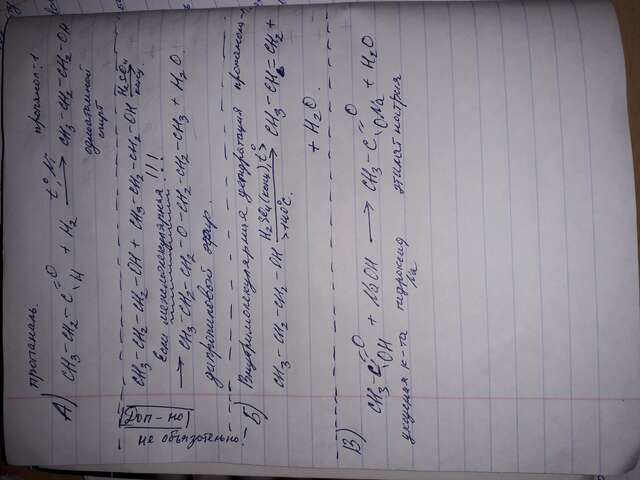 пропаналь. пропанол-1
А) CH3-CH2-C=O H + H2 t°, Ni → CH3-CH2-CH2-OH
одноатомный
спирт
Доп-но
не обязательно.
CH3-CH2-CH2-OH + CH3-CH2-CH2-OH H2SO4 конц. →
Если межмолекулярная!!!
→ CH3-CH2-CH2-O-CH2-CH2-CH3 + H2O.
дипропиловый эфир.
Б) Внутримолекулярная дегидратация пропанола-1
CH3-CH2-CH2-OH H2SO4(конц), t° >140°C → CH3-CH=CH2 +
+ H2O.
В) CH3-C=O OH + NaOH → CH3-C=O ONa + H2O
уксусная к-та гидроксид Na этилат натрия